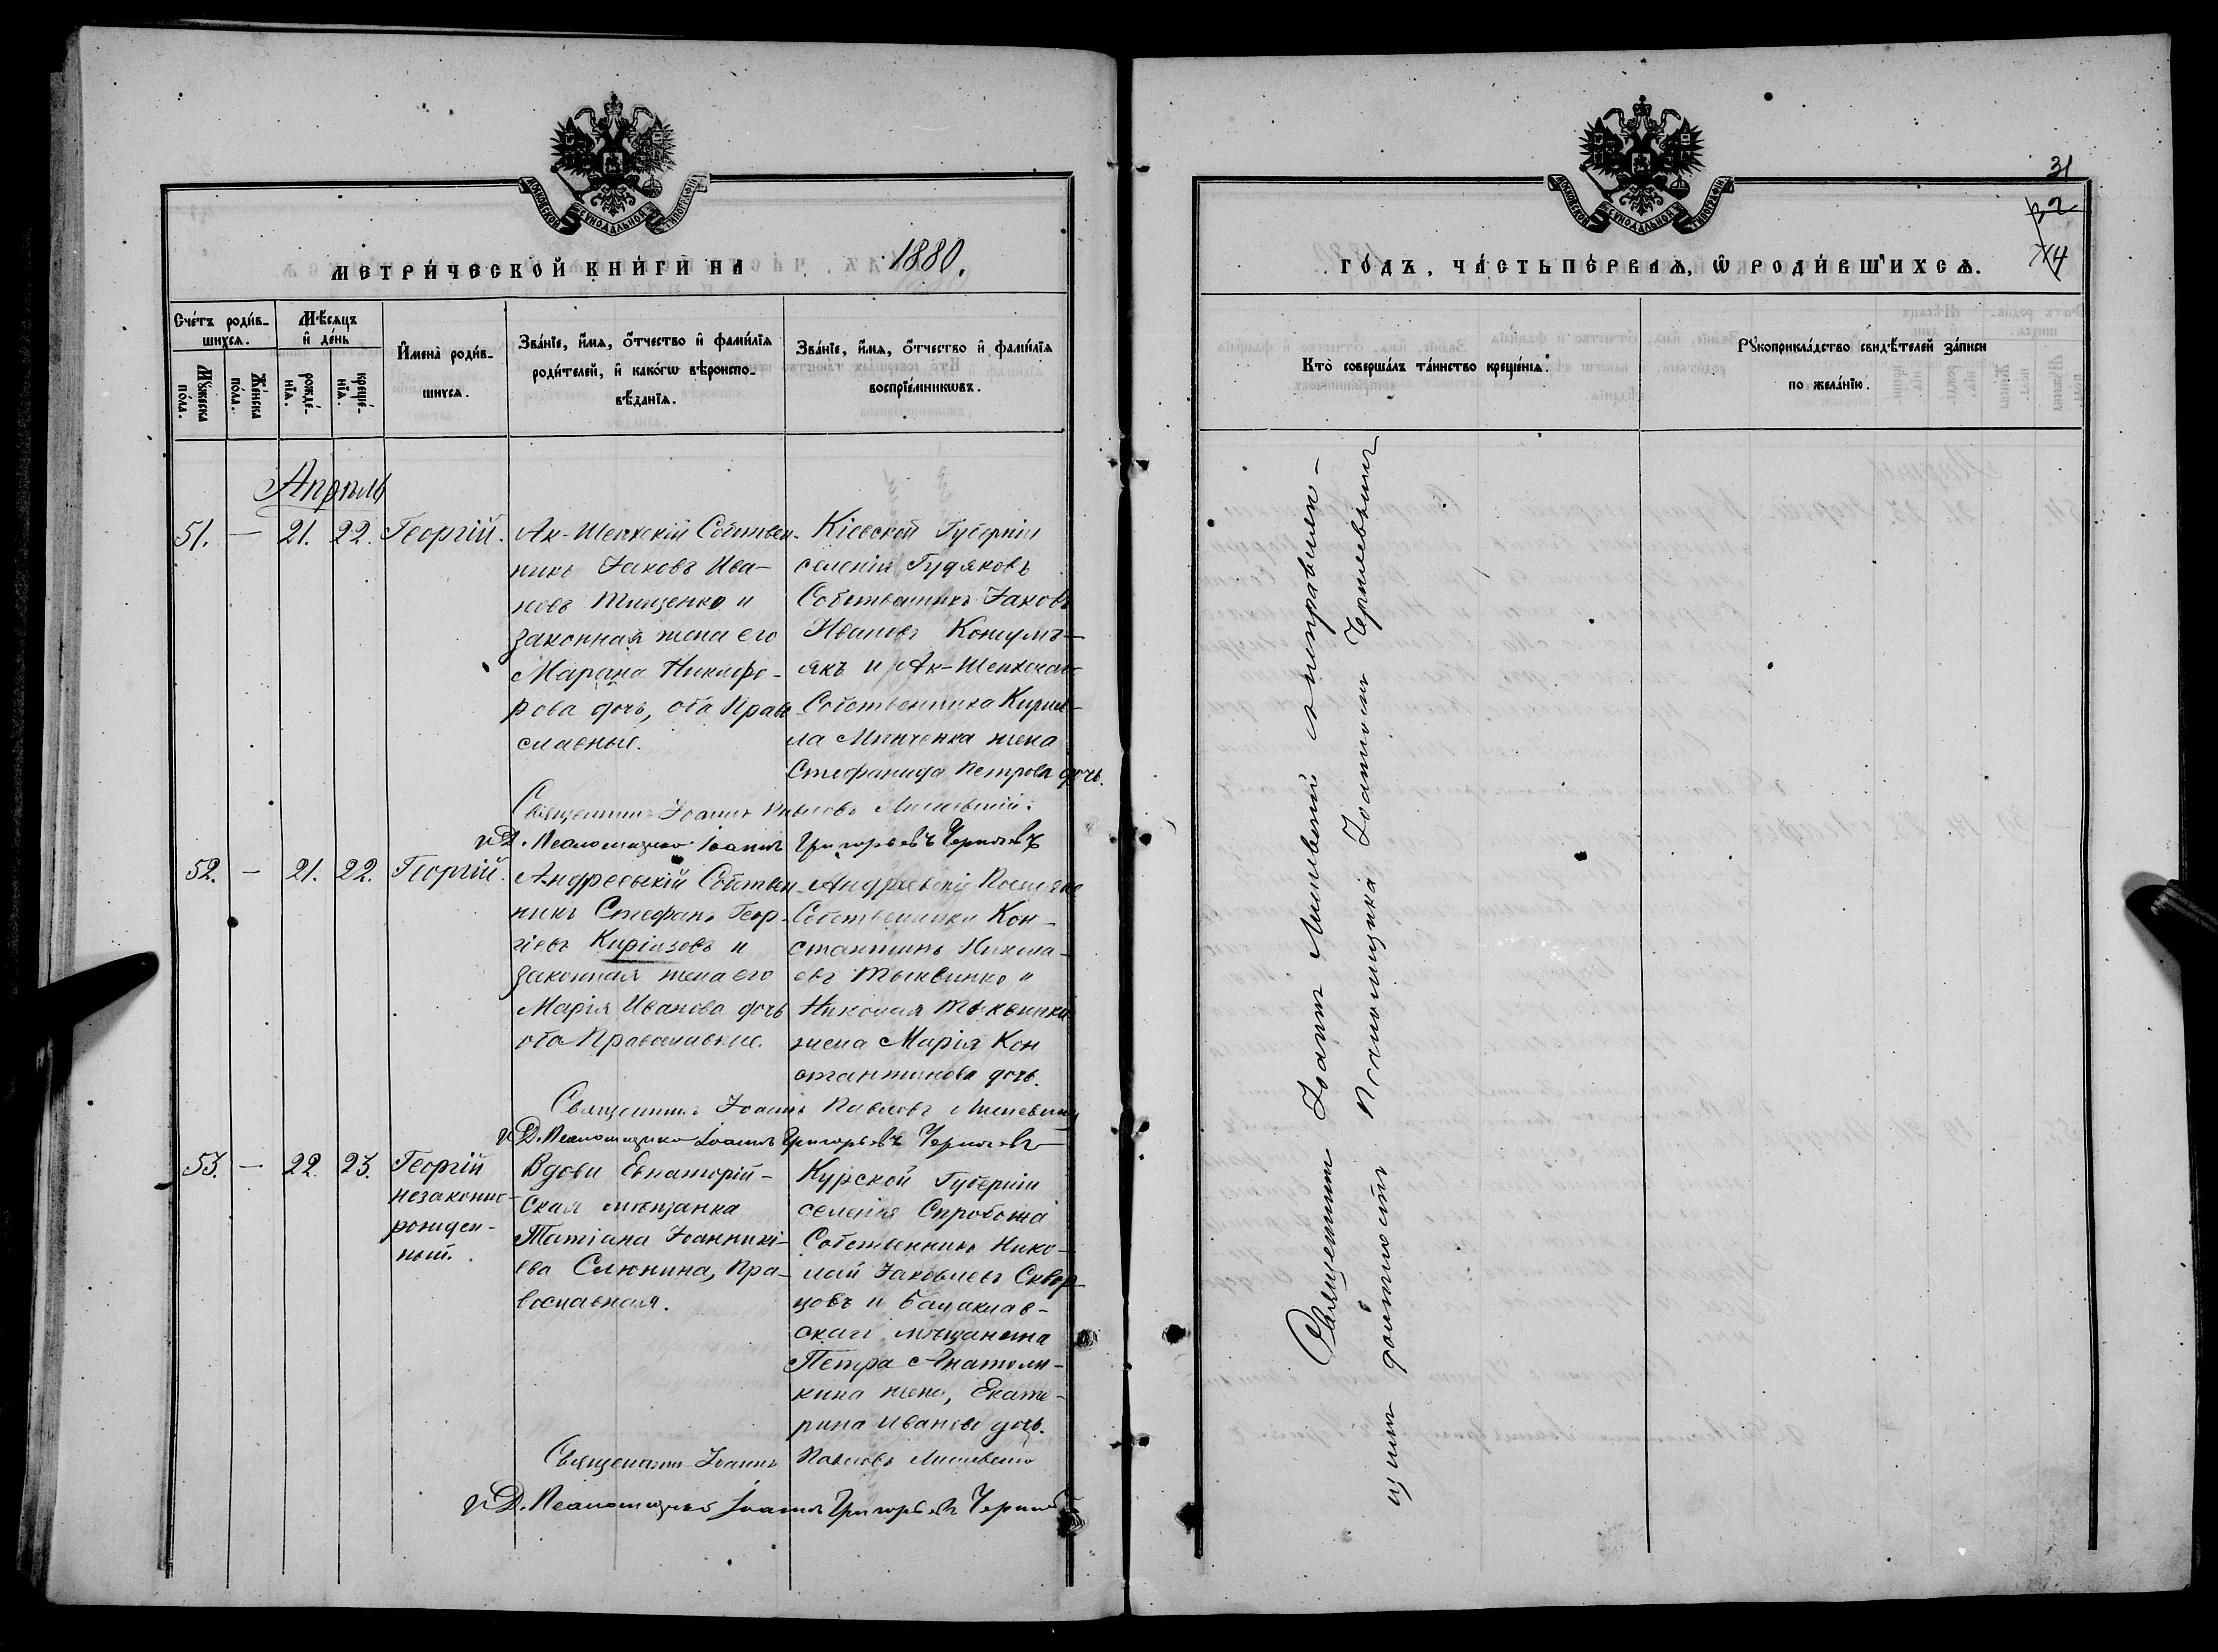 МОСКОВСКОЙ СѴНОДАЛЬНОЙ ТИПОГРАФІИ
МЕТРИ́ЧЕСКОЙ КНИ́ГИ НА 1880.
Сче́тъ роди́в-
шихсѧ.
Мꙋ́жеска
по́ла.
Же́нска
по́ла.
Мѣ́сѧцъ
и҆ де́нь
рожде́-
нїѧ.
креще́-
нїѧ.
И҆мена̀ роди́в-
шихсѧ.
Зва́нїе, и҆́мѧ, ѻ҆́тчество и҆ фами́лїѧ
роди́телей, и҆ како́гѡ вѣроиспо-
вѣ́данїѧ.
Зва́нїе, и҆́мѧ, ѻ҆́тчество и҆ фами́лїѧ
воспрїе́мникѡвъ.
Апрѣль
51. — 21. 22. Георгій.
Ак-Шеихскій Собствен-
никъ Іаковъ Ива-
новъ Тищенко и
законная жена его
Никифо-
рова дочь, оба Право
славные.
Кіевской Губерніи
селенія Гудяковъ
Собственникъ Іаковъ
Ивановъ Кожумъ-
якъ и Ак-Шеихскаго
Собственника Кирил-
ла Минченка жена
Стефанида Петрова дочь.
Священникъ Іоаннъ Павловъ
и Д. Псаломщика Іоаннъ Григорьевъ Чернявъ
52. — 21. 22. Георгій.
Андреевскій Собствен-
никъ Стефанъ Геор-
гіевъ Киріазовъ и
законная жена его
Марія Иванова дочь
оба Православные.
Андреевскіе
Собственники Кон-
стантинъ Никола-
евъ Тыквинко и
Николая Тыквинка
жена Марія Кон
стантинова дочь.
Священникъ Іоаннъ Павловъ
и Д. Псаломщика Іоаннъ Григорьевъ
53. — 22. 23. Георгій
незаконно-
рожден-
ный.
Вдова Евпаторій-
ская мѣщанка
Татіана Іоанникі-
ева Слюнина, Пра-
вославная.
Курской Губерніи
селенія
Собственникъ Нико-
лай Іаковлевъ Сквор-
цовъ и Балаклав-
скаго мѣщанина
Петра Анатоли-
кина жена, Екате-
рина Иванова дочь.
Священникъ Іоаннъ Павловъ
и Д. Псаломщика Іоаннъ Григорьевъ
31
32
МОСКОВСКОЙ СѴНОДАЛЬНОЙ ТИПОГРАФІИ
ГО́ДЪ, ЧА́СТЬ ПЕ́РВАѦ, Ѡ҆ РОДИ́ВШИХСѦ.
Кто̀ соверша́лъ та́инство креще́нїѧ.
Рꙋкоприкла́дство свидѣ́телей за́писи
по жела́нїю.
Священникъ Іоаннъ съ исправляю-
щимъ должность Псаломщика Іоанномъ